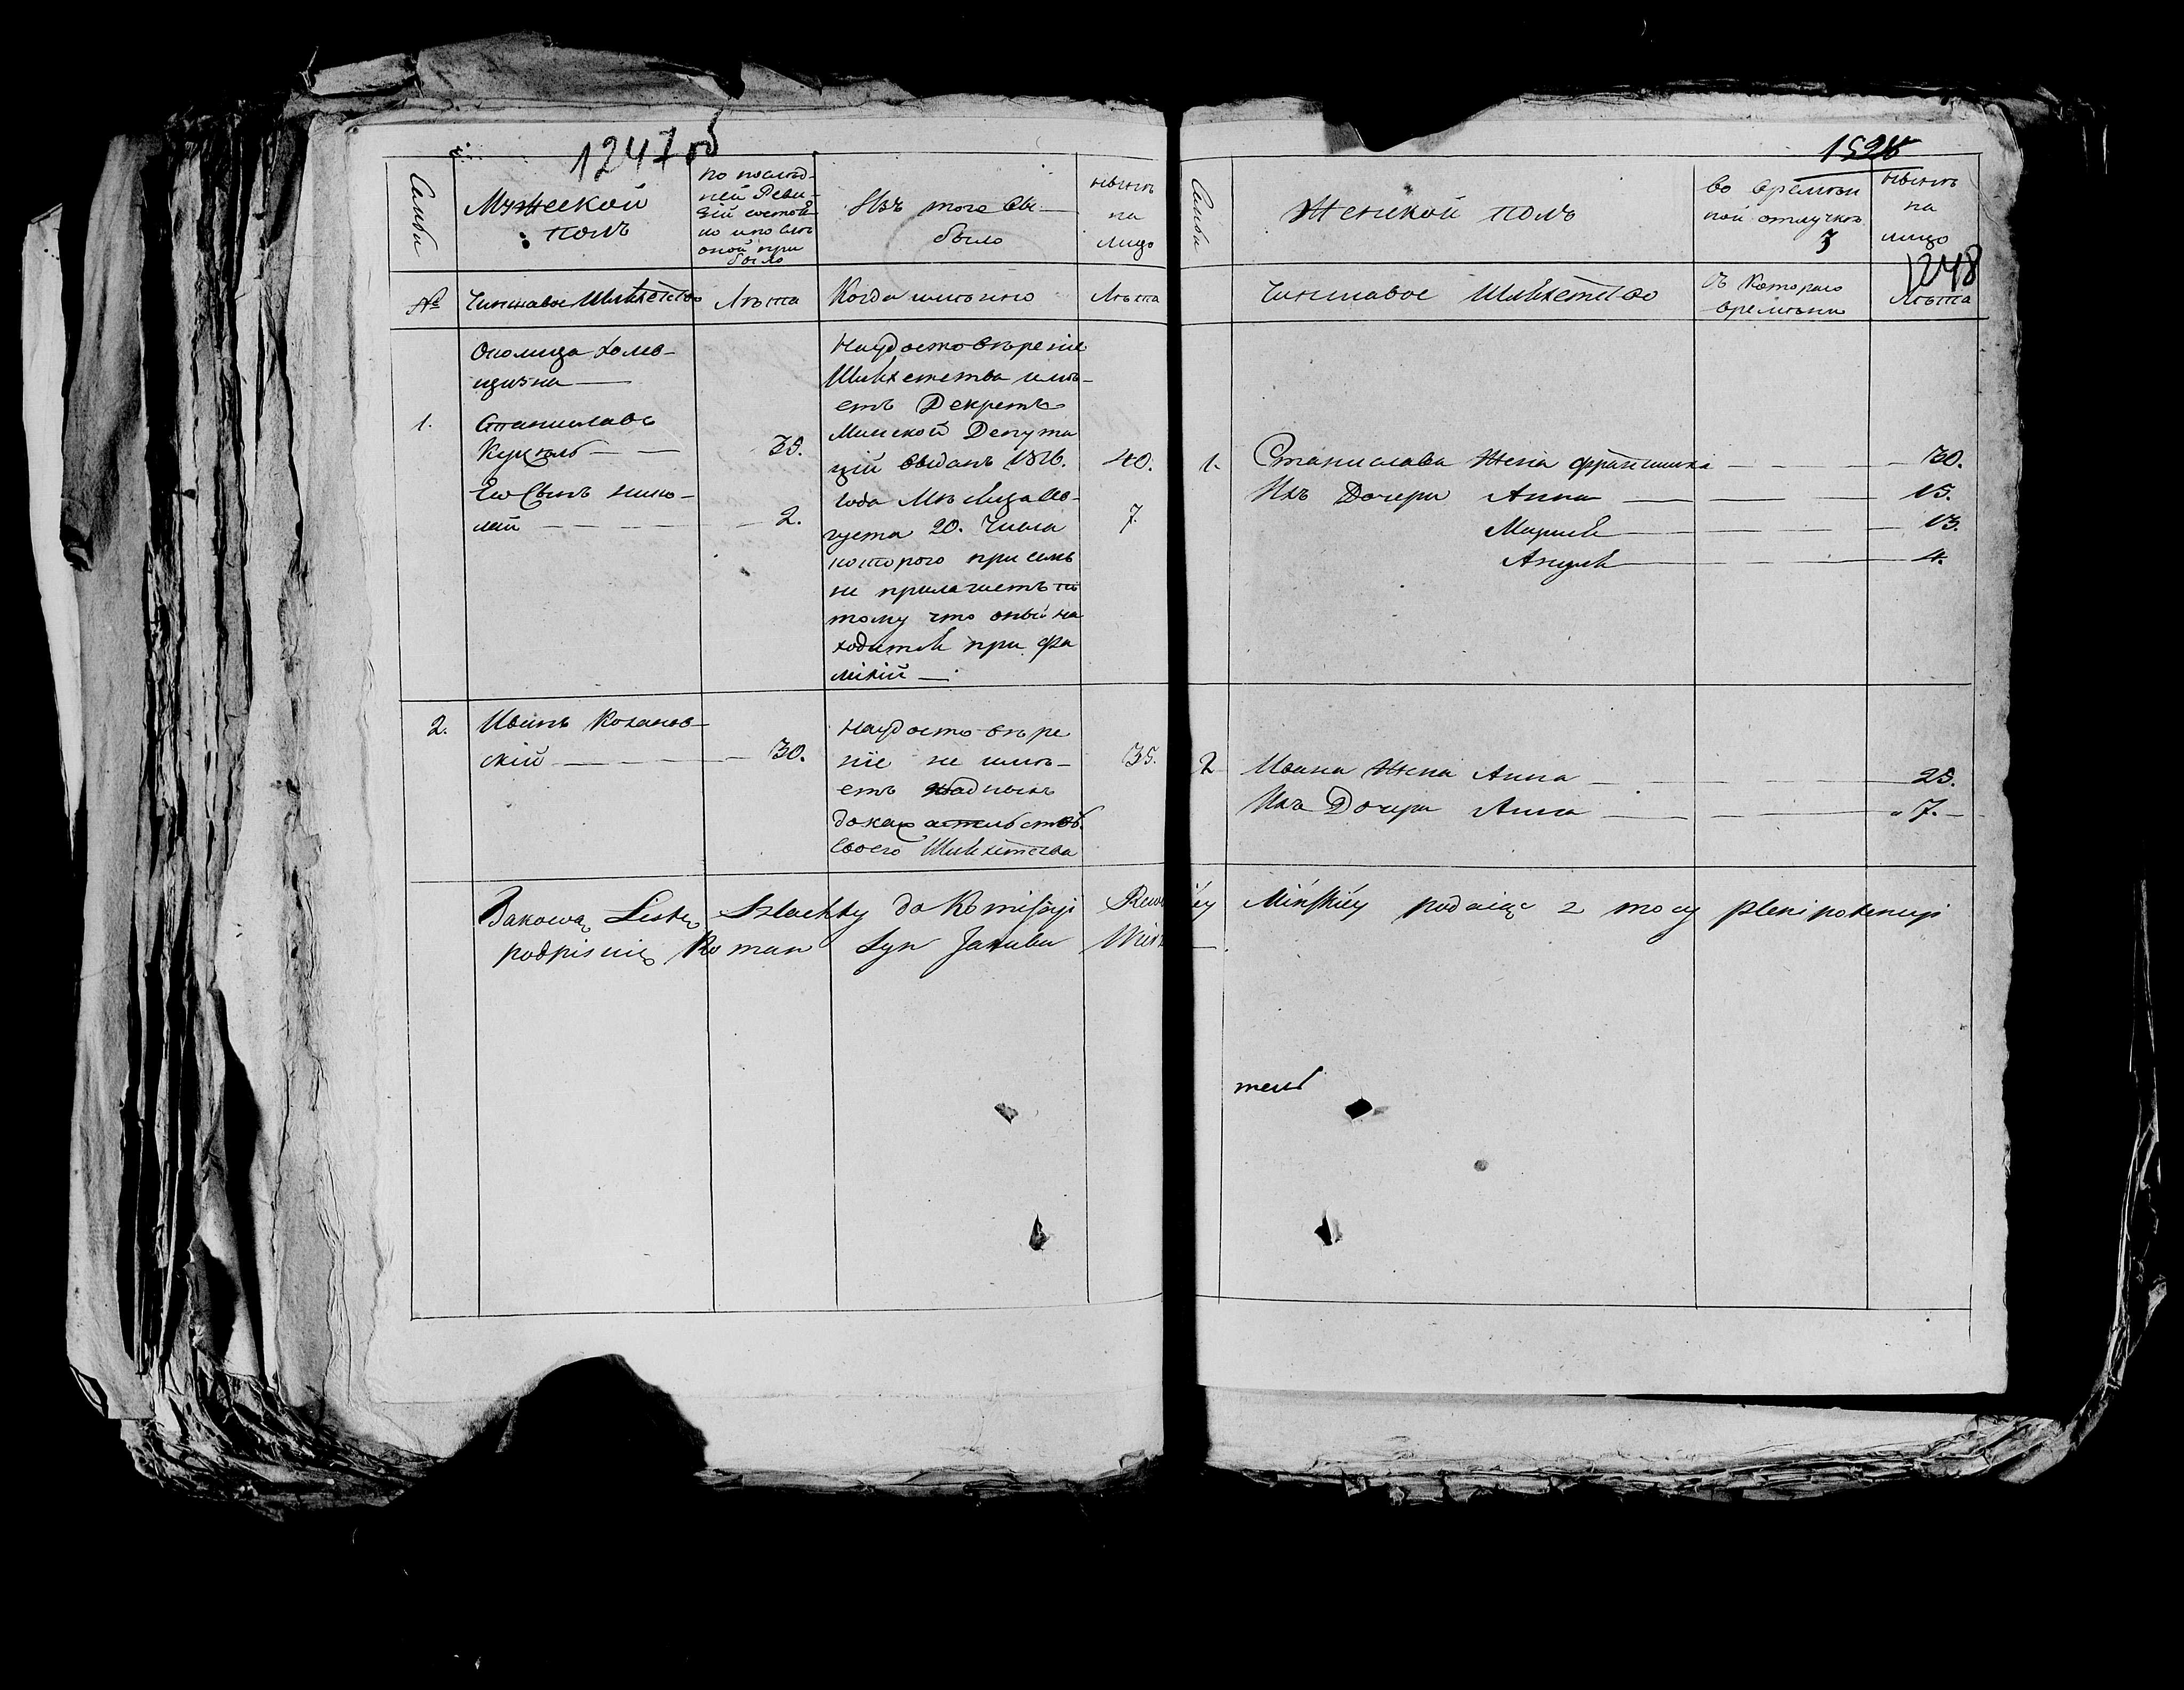 1247 об
Семьи
Мужеской
полъ
по послѣд-
ней Реви-
зіи состоя-
ло и после
оной при
было
Изъ того вы-
было
нынѣ
на
лицо
№
Чиншовое Шляхетство
Лѣта
Когда имянно
Лѣта
Околица холо-
щизна
1.
Станиславъ
35.
40.
Его Сынъ Нико-
лай
2.
7.
Наудостовѣреніе
Шляхетства имѣ-
етъ Декретъ
Минской Депута
цій выданъ 1816.
года Мѣсяца Ав-
густа 20. Числа
котораго при семъ
не прилагаетъ по
тому что оный на
ходится при фа
миліи
2.
Иванъ Кохановъ-
скій
30.
Наудостовѣре
ніе не имѣ-
етъ жадныхъ
доказательствъ
своего Шляхетства
35.
Takową Listę Szlachty do Komisyi Rewi
podpisuię Roman Syn Jakuba
1528
1248
Семьи
Женской полъ
во времѣн
ной отлучкѣ
3
нынѣ
на
лицо
Чиншовое Шляхетство
съ Котораго
времѣни
Лѣта
1. Станислава Жена Франтишка 30.
Ихъ Дочери Анна 15.
Марья 13.
Анеля 4.
2 Ивана Жена Анна 25.
Ихъ Дочери Анна 7.
Mińskiey podaiąc z mocy plenipotencyi
тель